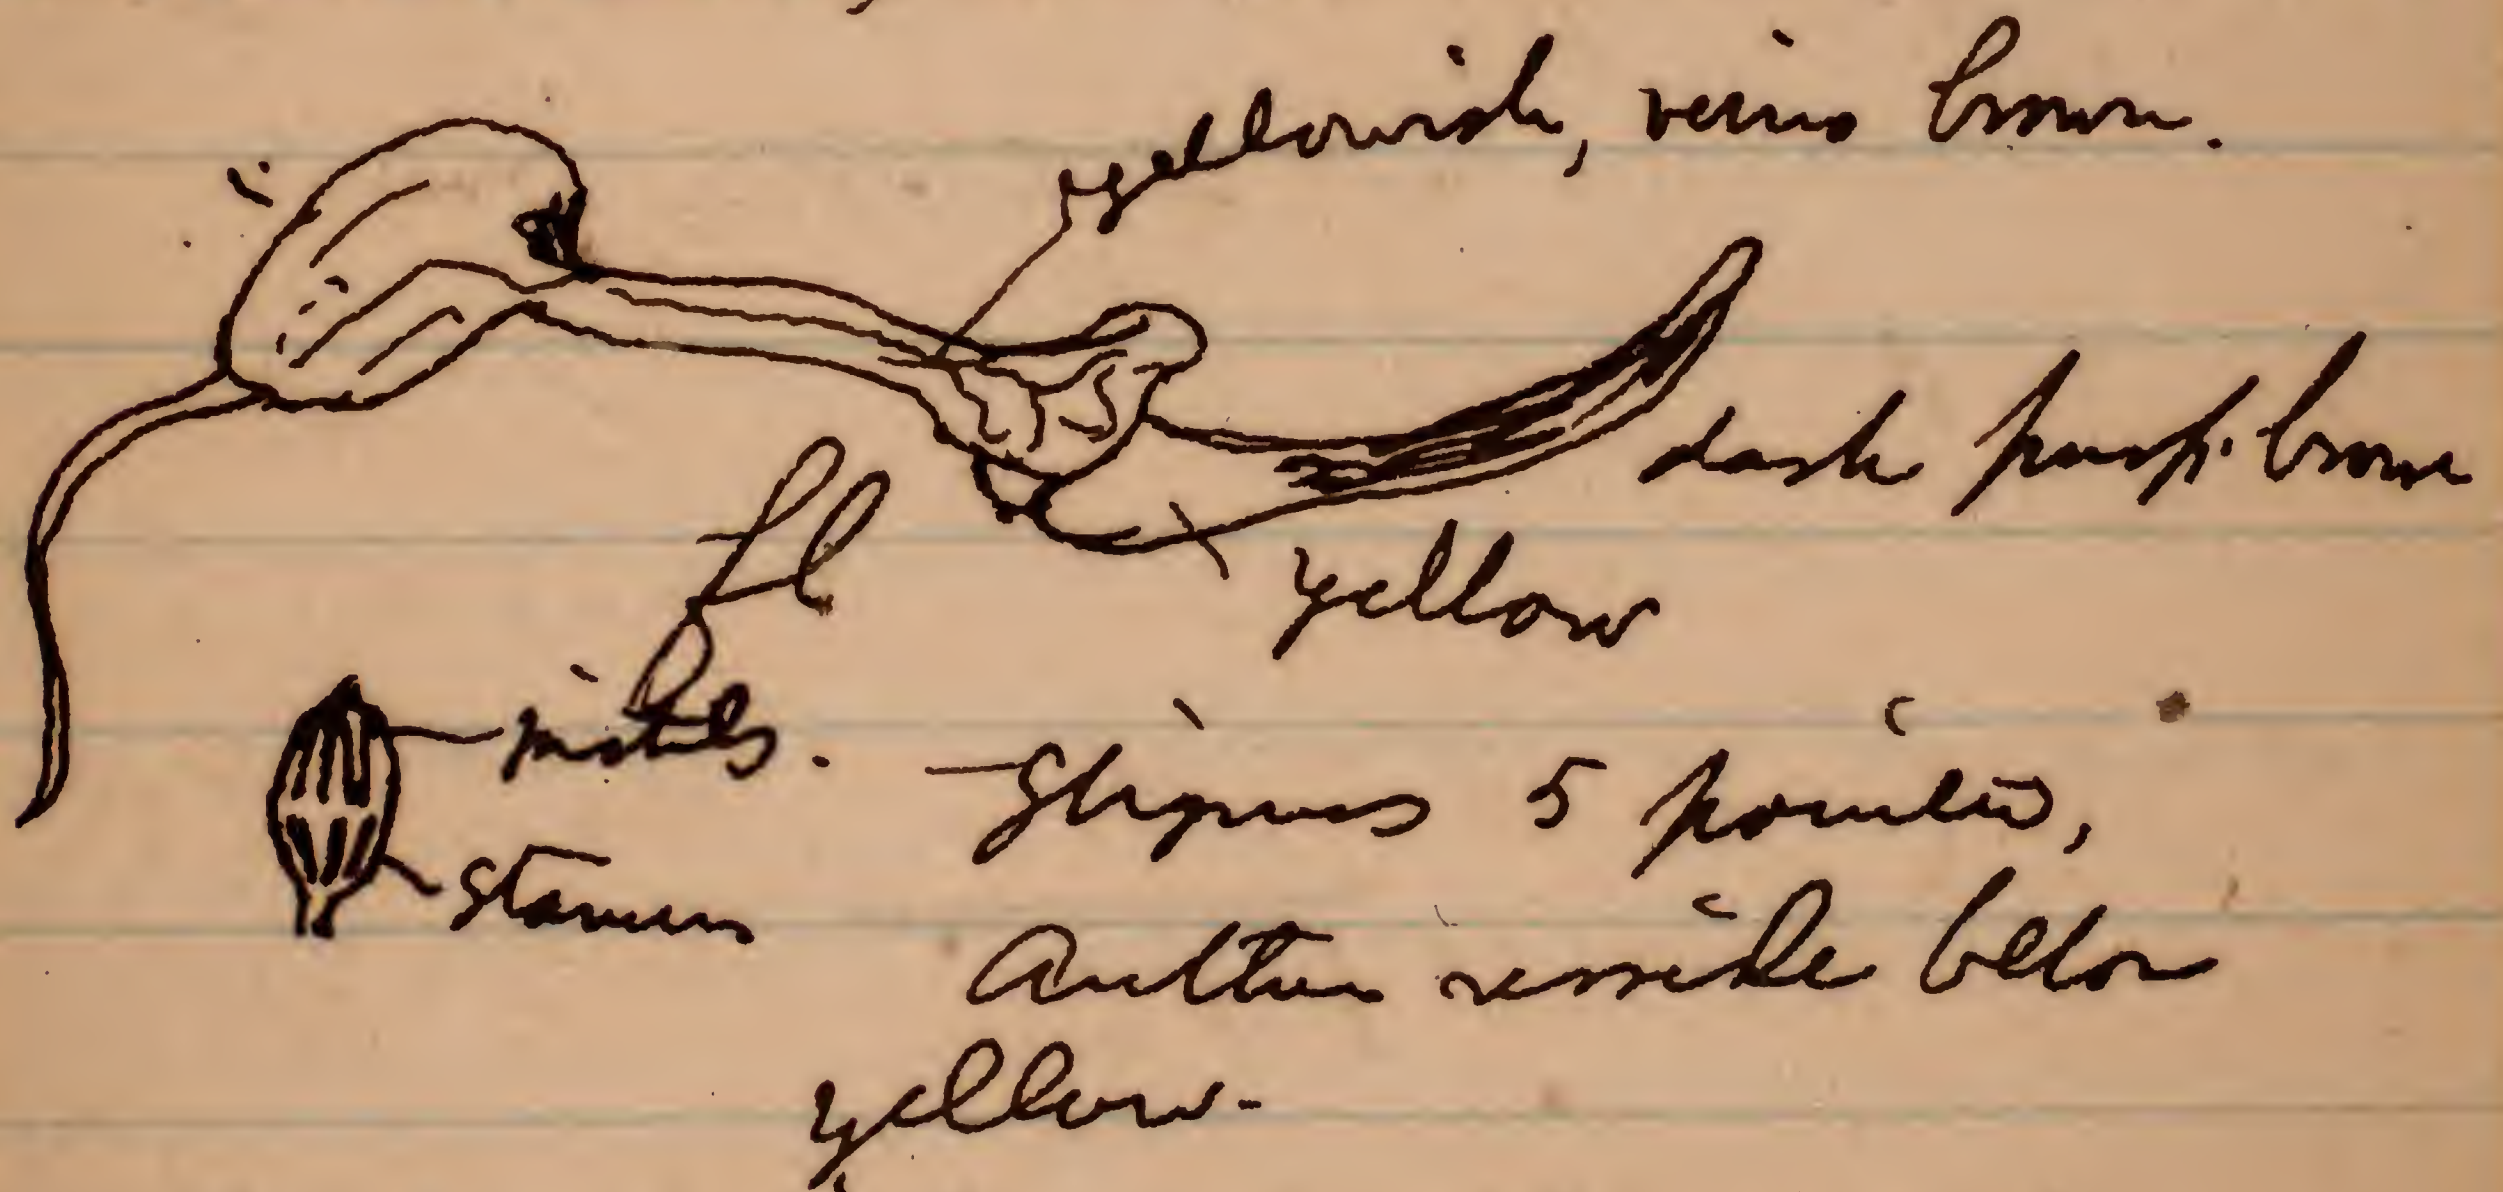 yellowish, veins brown.
dark purp. brown
fl
yellow
pistils.
stamens
Stigmas 5 pointed,
Anthers sessile below
yellow-